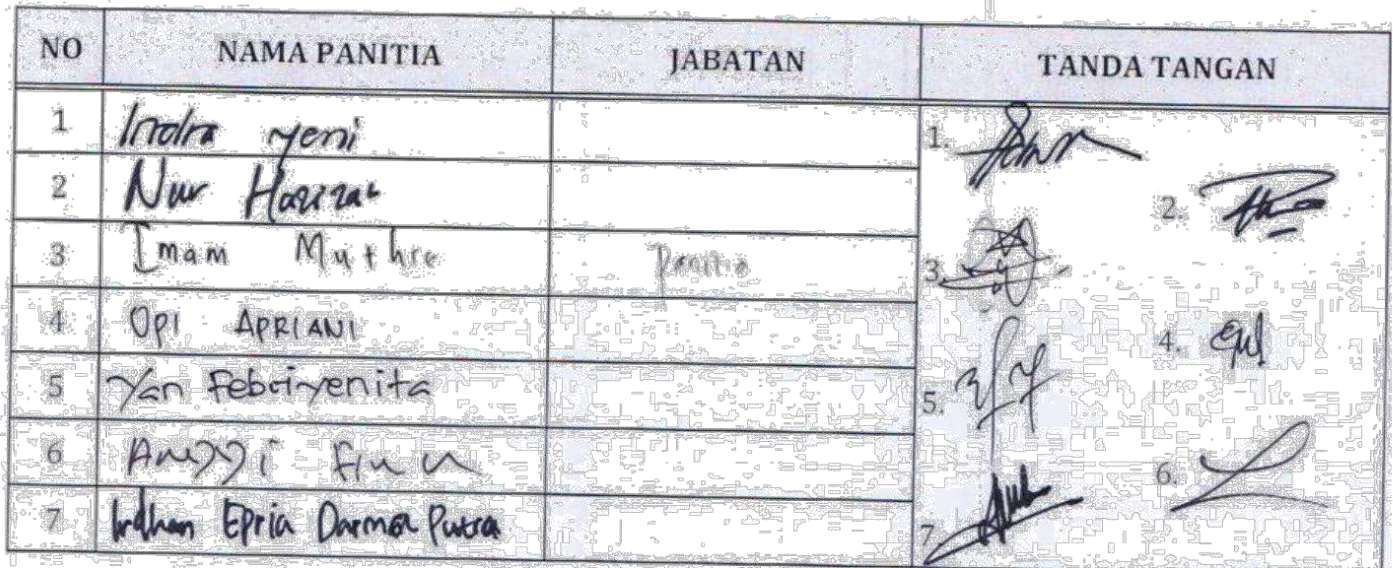 NO NAMA PANITIA JABATAN TANDA TANGAN
1 Indra Yeni 1.
2 Nur 2.
3 Imam Panitia 3.
4 OPI APRIANI 4.
5 Yan Febriyenita 5.
6 Anggi 6.
7 Epria Darma Putra 7.